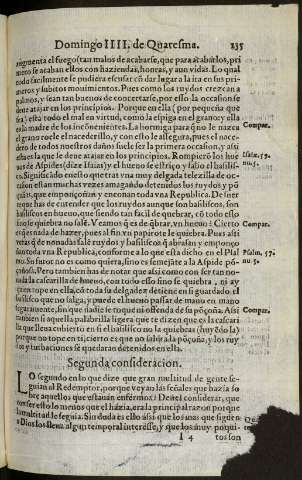 Domingo IIII. de Quaresma. 235
augmenta el fuego: tan malos de acabarse, que para acabarlos, pri
mero se acaban ellos con haziendas, honras, y aun vidas. Lo qual
todo facilmente se pudiera escusar con dar lugar a la ira en sus pri-
meros y subitos mouimientos. Pues como los ruydos crezcan a
palmos, y sean tan buenos de concertarse, por esso la occasion se
deue atajar en los principios. Porque en ella (por pequeña que
sea) està todo el mal en virtud, como la espiga en el grano: y ella
es la madre de los inconuenientes. La hormiga para q̃ no le nazca
el grano roele el nacederillo, y con esso le assegura, pues el nace-
dero de todos nuestros daños suele ser la primera occasion, y assi
esta es la que se deue atajar en los principios. Rompierõ los hue
uos de Aspides (dize Isaias) y el hueuo se estrujo y salio el basilis-
co. Significado en esto que tras vna muy delgada telilla de oc-
casion estan muchas vezes amagando detenidos los ruydos y pques
que emponçoñan y enconan toda vna Republica. De suer
te que has de entender que los ruydos aunque son basiliscos, son
basiliscos en hueuo, que siendo tan facil de quebrar, cõ todo esso
sino se quiebra no sale. Veamos q̃ es de q̃brar vn hueuo? Cierto
es q̃ es nada de hazer, pues al fin vn papirote le quiebra. Pues assi
veras q̃ de nonada salẽ ruydos y basiliscos q̃ abrasan y emponço
ñan toda vna Republica, conforme a lo que esta dicho en el Psal
mo. Su furor no es como quiera, sino es semejãte a la Aspide põ-
çoñosa. Pero tambien has de notar que assi como con ser tan no-
nada la cascarilla de hueuo, con todo esso sino se quiebra, ni ay
quien tope en ella, cõ toda su delgadez detiene en si guardado el
basilisco que no salga, y puede el hueuo passar de mano en mano
seguramente, sin que nadie se toque ni ofenda de su põçoña. Assi
tambien si aquella palabrilla ligera que te dizen que es la cascari
lla que llena cubierto en si el basilisco no la quiebras (huyẽdo la)
porque no tope en ti, cierto es que no saldrá la põçoña, y los ruy
dos y turbaciones se quedaran detenidos en ella.
Compar.
Isaiæ. 59.
nu. 5.
Compar.
Psalm. 57.
nu. 5.
Compar.
Segunda consideracion.
LO segundo en lo que dize que gran multitud de gente se-
guian al Redemptor, porque veyan las señales que hazia so
bre aquellos que estauan enfermos: Deues considerar, que
con ser esto lo menos que el hazia, era la principal razon porque
la multitud le seguia. Sin duda es ello assi que los mas que siguen
a Dios los lleua algun temporal interesse, y que los muy poqui-
I 4 tos son